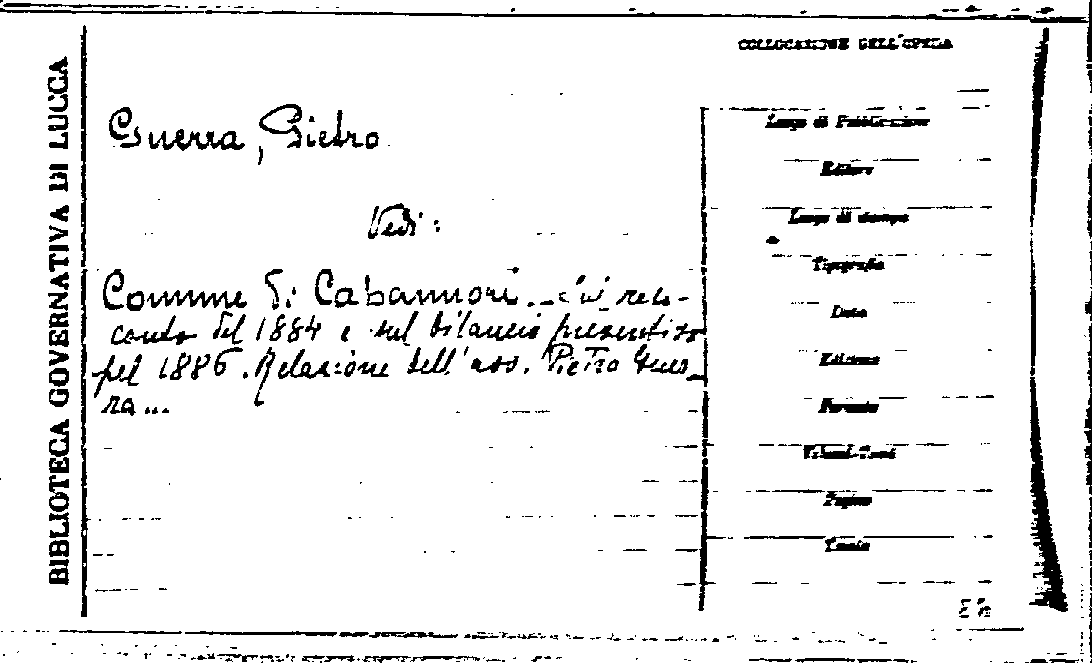 BIBLIOTECA GOVERNATIVA DI LUCCA
COLLOCAZIONE DELL'OPERA
Guerra, Pietro
Vedi:
Comune di Capannori. Sul reso-
conto del 1884 e sul bilancio preventivo
pel 1886. Relazione dell'ass. Pietro Guer-
ra...
Luogo di Pubblicazione
Editore
Luogo di stampa
Tipografia
Data
Edizione
Formato
Volumi-Tomi
Pagine
Tavole